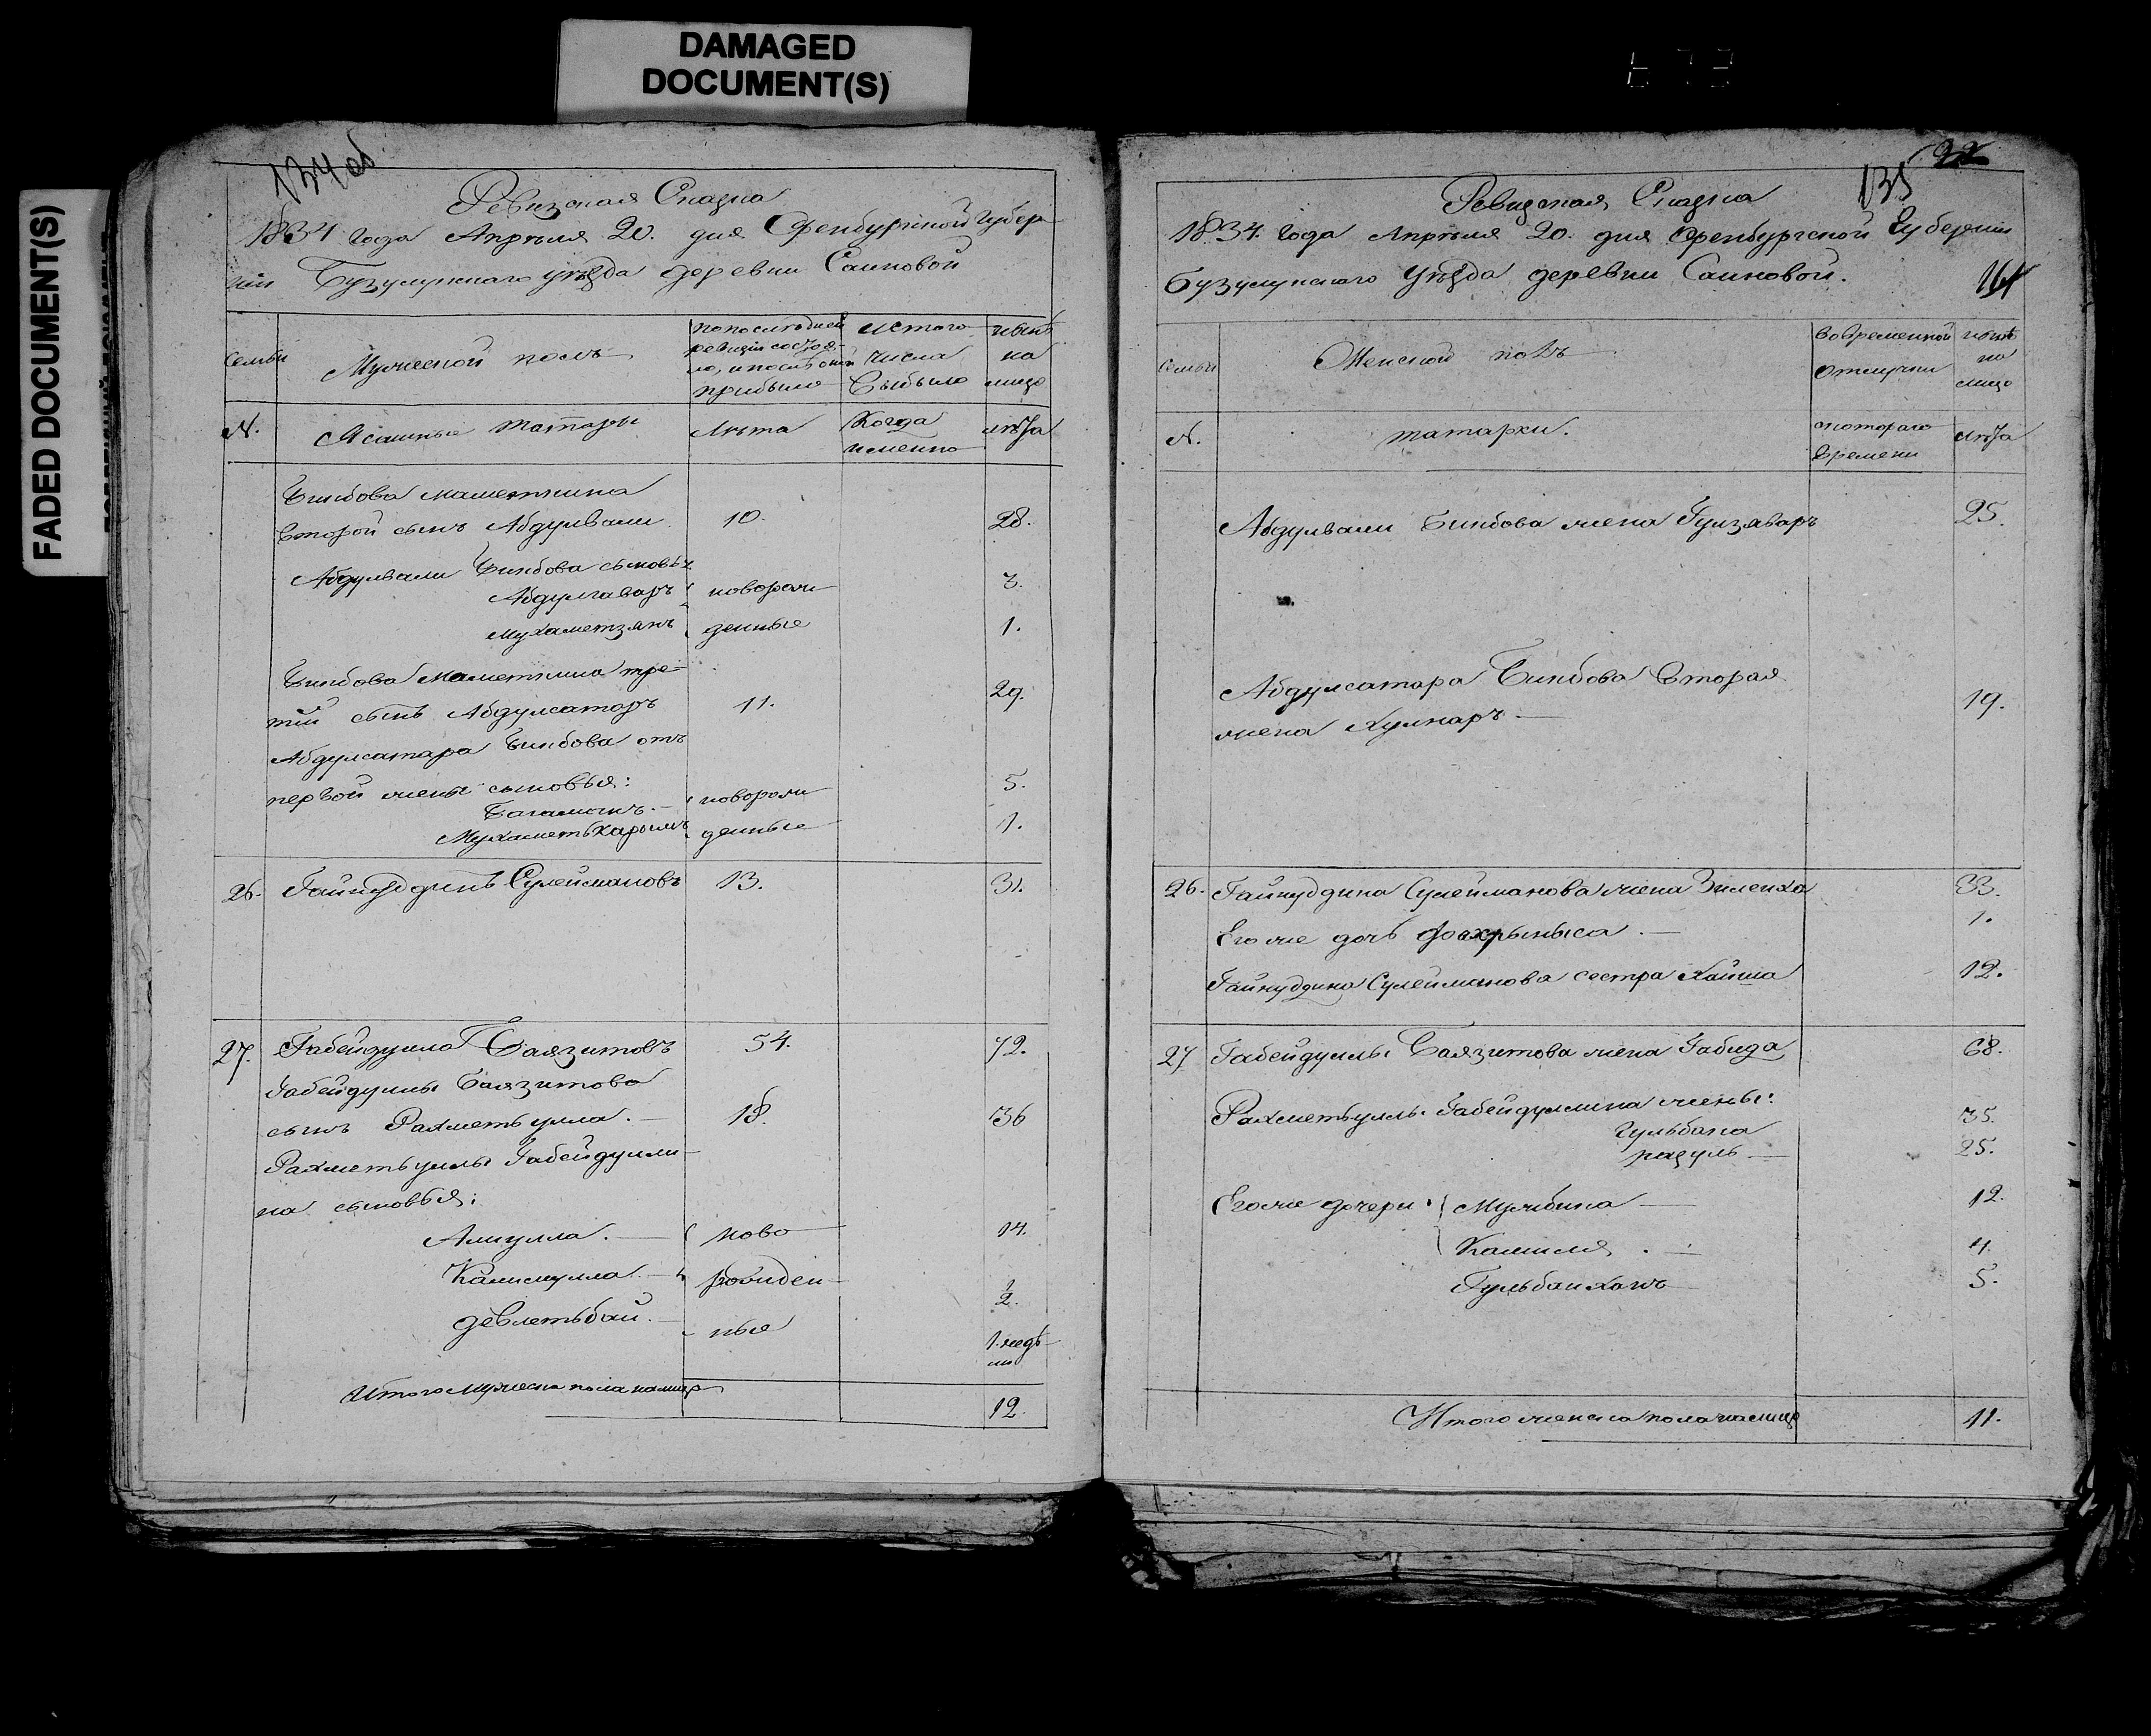 DAMAGED
DOCUMENT(S)
FADED DOCUMENT(S)
134 об
Ревизская Сказка
1834 года Апреля 20. дня Оренбургской губер
нии Бузулукскаго уезда деревни Саиновой
семьи
Мужеской полъ
по последней
ревизии состоя-
ло, и после оной
прибыло
из того
числа
выбыло
ныне
на
лицо
N.
Ясашные татары
Лета
Когда
именно
лета
Бикбова Маметкина
второй сынъ Абдулвали 10. 28.
Абдулвали Бикбова сыновья
Абдулгаваръ новорож 3.
Мухаметзянъ денные 1.
Бикбова Маметкина тре-
тий сынъ Абдулсатаръ 11. 29.
Абдулсатара Бикбова отъ
первой жены сыновья: 5.
новорож
Мухаметькарымъ денные 1.
26. Гайнуддинъ Сулеймановъ 13. 31.
27. Габейдулла Баязитовъ 54. 72.
Габейдуллы Баязитова
сынъ Рахметьулла. 18. 36
Рахметьуллы Габейдулли
на сыновья:
Алиулла. ново 14.
Калимулла. рожден 2.
Девлетьбай. ные 1. неде
ли
Итого мужеска пола налицо 12.
22
135
Ревизская Сказка
1834. года Апреля 20. дня Оренбургской Губернии
Бузулукскаго Уезда деревни Саиновой.
семьи
Женской полъ
во временной
отлучки
ныне
на
лицо
N.
татарки.
с котораго
времени
лета
Абдулвали Бикбова жена Гулзяваръ 25.
Абдулсатара Бикбова вторая
жена Хулнаръ 19.
26. Гайнуддина Сулейманова жена Зилейха 33.
Его же дочь Фахрыныса. 1.
Гайнуддина Сулейманова сестра Хайша 12.
27 Габейдуллы Баязитова жена Габида 68.
Рахметьуллы Габейдуллина жены:
Гульбана 35.
разуль 25.
Его же дочери: Мулкбика 12.
Камиля. 4.
Гульбанханъ 5.
Итого женска пола налицо 11.